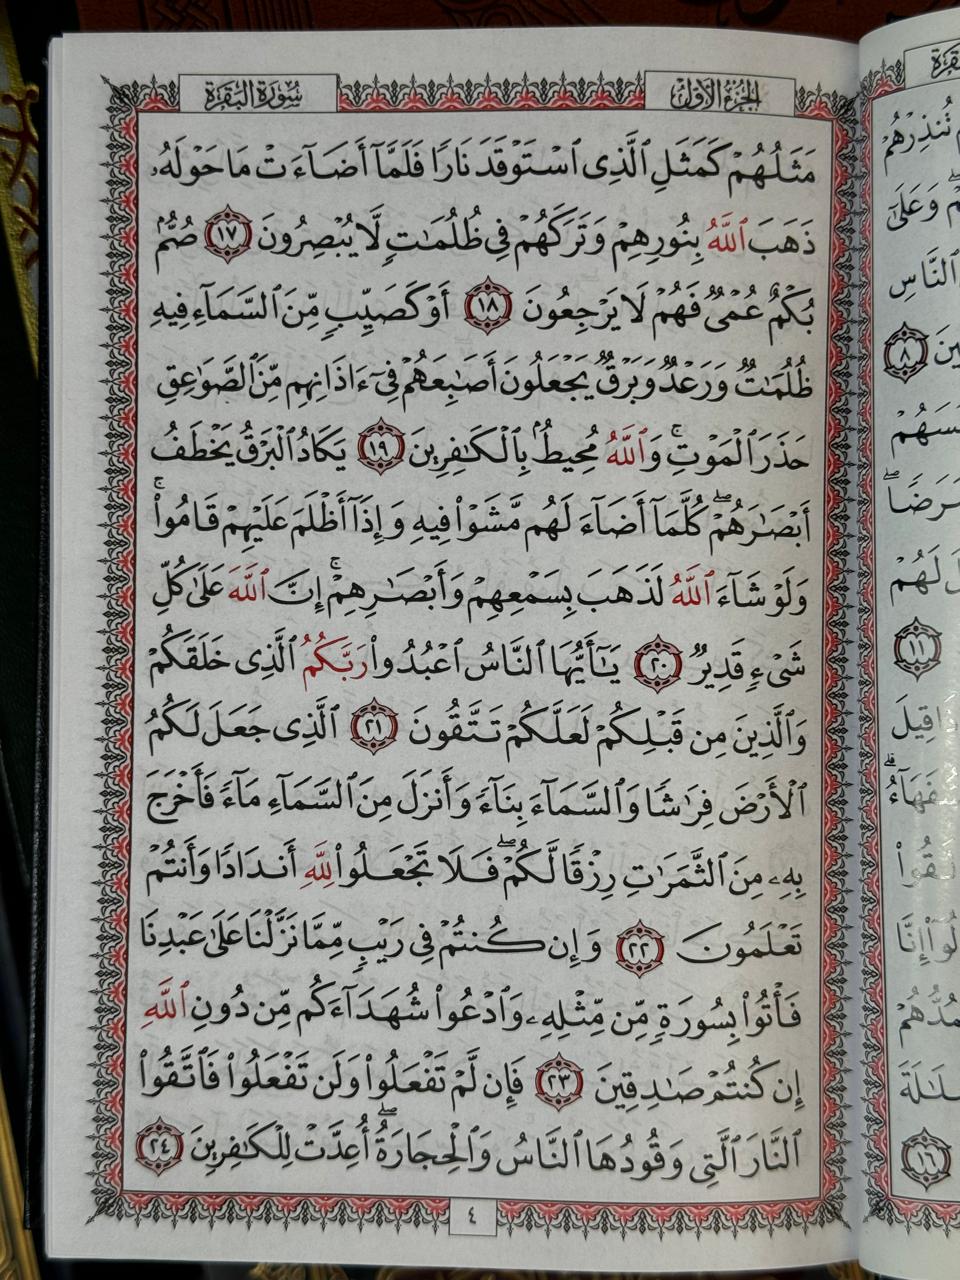 الجزء الأول
سورة البقرة
مَثَلُهُمْ كَمَثَلِ ٱلَّذِى ٱسْتَوْقَدَ نَارًا فَلَمَّآ أَضَآءَتْ مَا حَوْلَهُۥ
ذَهَبَ ٱللَّهُ بِنُورِهِمْ وَتَرَكَهُمْ فِى ظُلُمَـٰتٍ لَّا يُبْصِرُونَ ١٧ صُمٌّۢ
بُكْمٌ عُمْىٌ فَهُمْ لَا يَرْجِعُونَ ١٨ أَوْ كَصَيِّبٍ مِّنَ ٱلسَّمَآءِ فِيهِ
ظُلُمَـٰتٌ وَرَعْدٌ وَبَرْقٌ يَجْعَلُونَ أَصَـٰبِعَهُمْ فِىٓ ءَاذَانِهِم مِّنَ ٱلصَّوَٰعِقِ
حَذَرَ ٱلْمَوْتِ ۚ وَٱللَّهُ مُحِيطٌۢ بِٱلْكَـٰفِرِينَ ١٩ يَكَادُ ٱلْبَرْقُ يَخْطَفُ
أَبْصَـٰرَهُمْ ۖ كُلَّمَآ أَضَآءَ لَهُم مَّشَوْا۟ فِيهِ وَإِذَآ أَظْلَمَ عَلَيْهِمْ قَامُوا۟ ۚ
وَلَوْ شَآءَ ٱللَّهُ لَذَهَبَ بِسَمْعِهِمْ وَأَبْصَـٰرِهِمْ ۚ إِنَّ ٱللَّهَ عَلَىٰ كُلِّ
شَىْءٍ قَدِيرٌ ٢٠ يَـٰٓأَيُّهَا ٱلنَّاسُ ٱعْبُدُوا۟ رَبَّكُمُ ٱلَّذِى خَلَقَكُمْ
وَٱلَّذِينَ مِن قَبْلِكُمْ لَعَلَّكُمْ تَتَّقُونَ ٢١ ٱلَّذِى جَعَلَ لَكُمُ
ٱلْأَرْضَ فِرَٰشًا وَٱلسَّمَآءَ بِنَآءً وَأَنزَلَ مِنَ ٱلسَّمَآءِ مَآءً فَأَخْرَجَ
بِهِۦ مِنَ ٱلثَّمَرَٰتِ رِزْقًا لَّكُمْ ۖ فَلَا تَجْعَلُوا۟ لِلَّهِ أَندَادًا وَأَنتُمْ
تَعْلَمُونَ ٢٢ وَإِن كُنتُمْ فِى رَيْبٍ مِّمَّا نَزَّلْنَا عَلَىٰ عَبْدِنَا
فَأْتُوا۟ بِسُورَةٍ مِّن مِّثْلِهِۦ وَٱدْعُوا۟ شُهَدَآءَكُم مِّن دُونِ ٱللَّهِ
إِن كُنتُمْ صَـٰدِقِينَ ٢٣ فَإِن لَّمْ تَفْعَلُوا۟ وَلَن تَفْعَلُوا۟ فَٱتَّقُوا۟
ٱلنَّارَ ٱلَّتِى وَقُودُهَا ٱلنَّاسُ وَٱلْحِجَارَةُ ۖ أُعِدَّتْ لِلْكَـٰفِرِينَ ٢٤
٤
تُنذِرْهُمْ
وَعَلَىٰٓ
ٱلنَّاسِ
٨
مَرَضًا ۖ
لَهُمْ
١١
قِيلَ
١٦